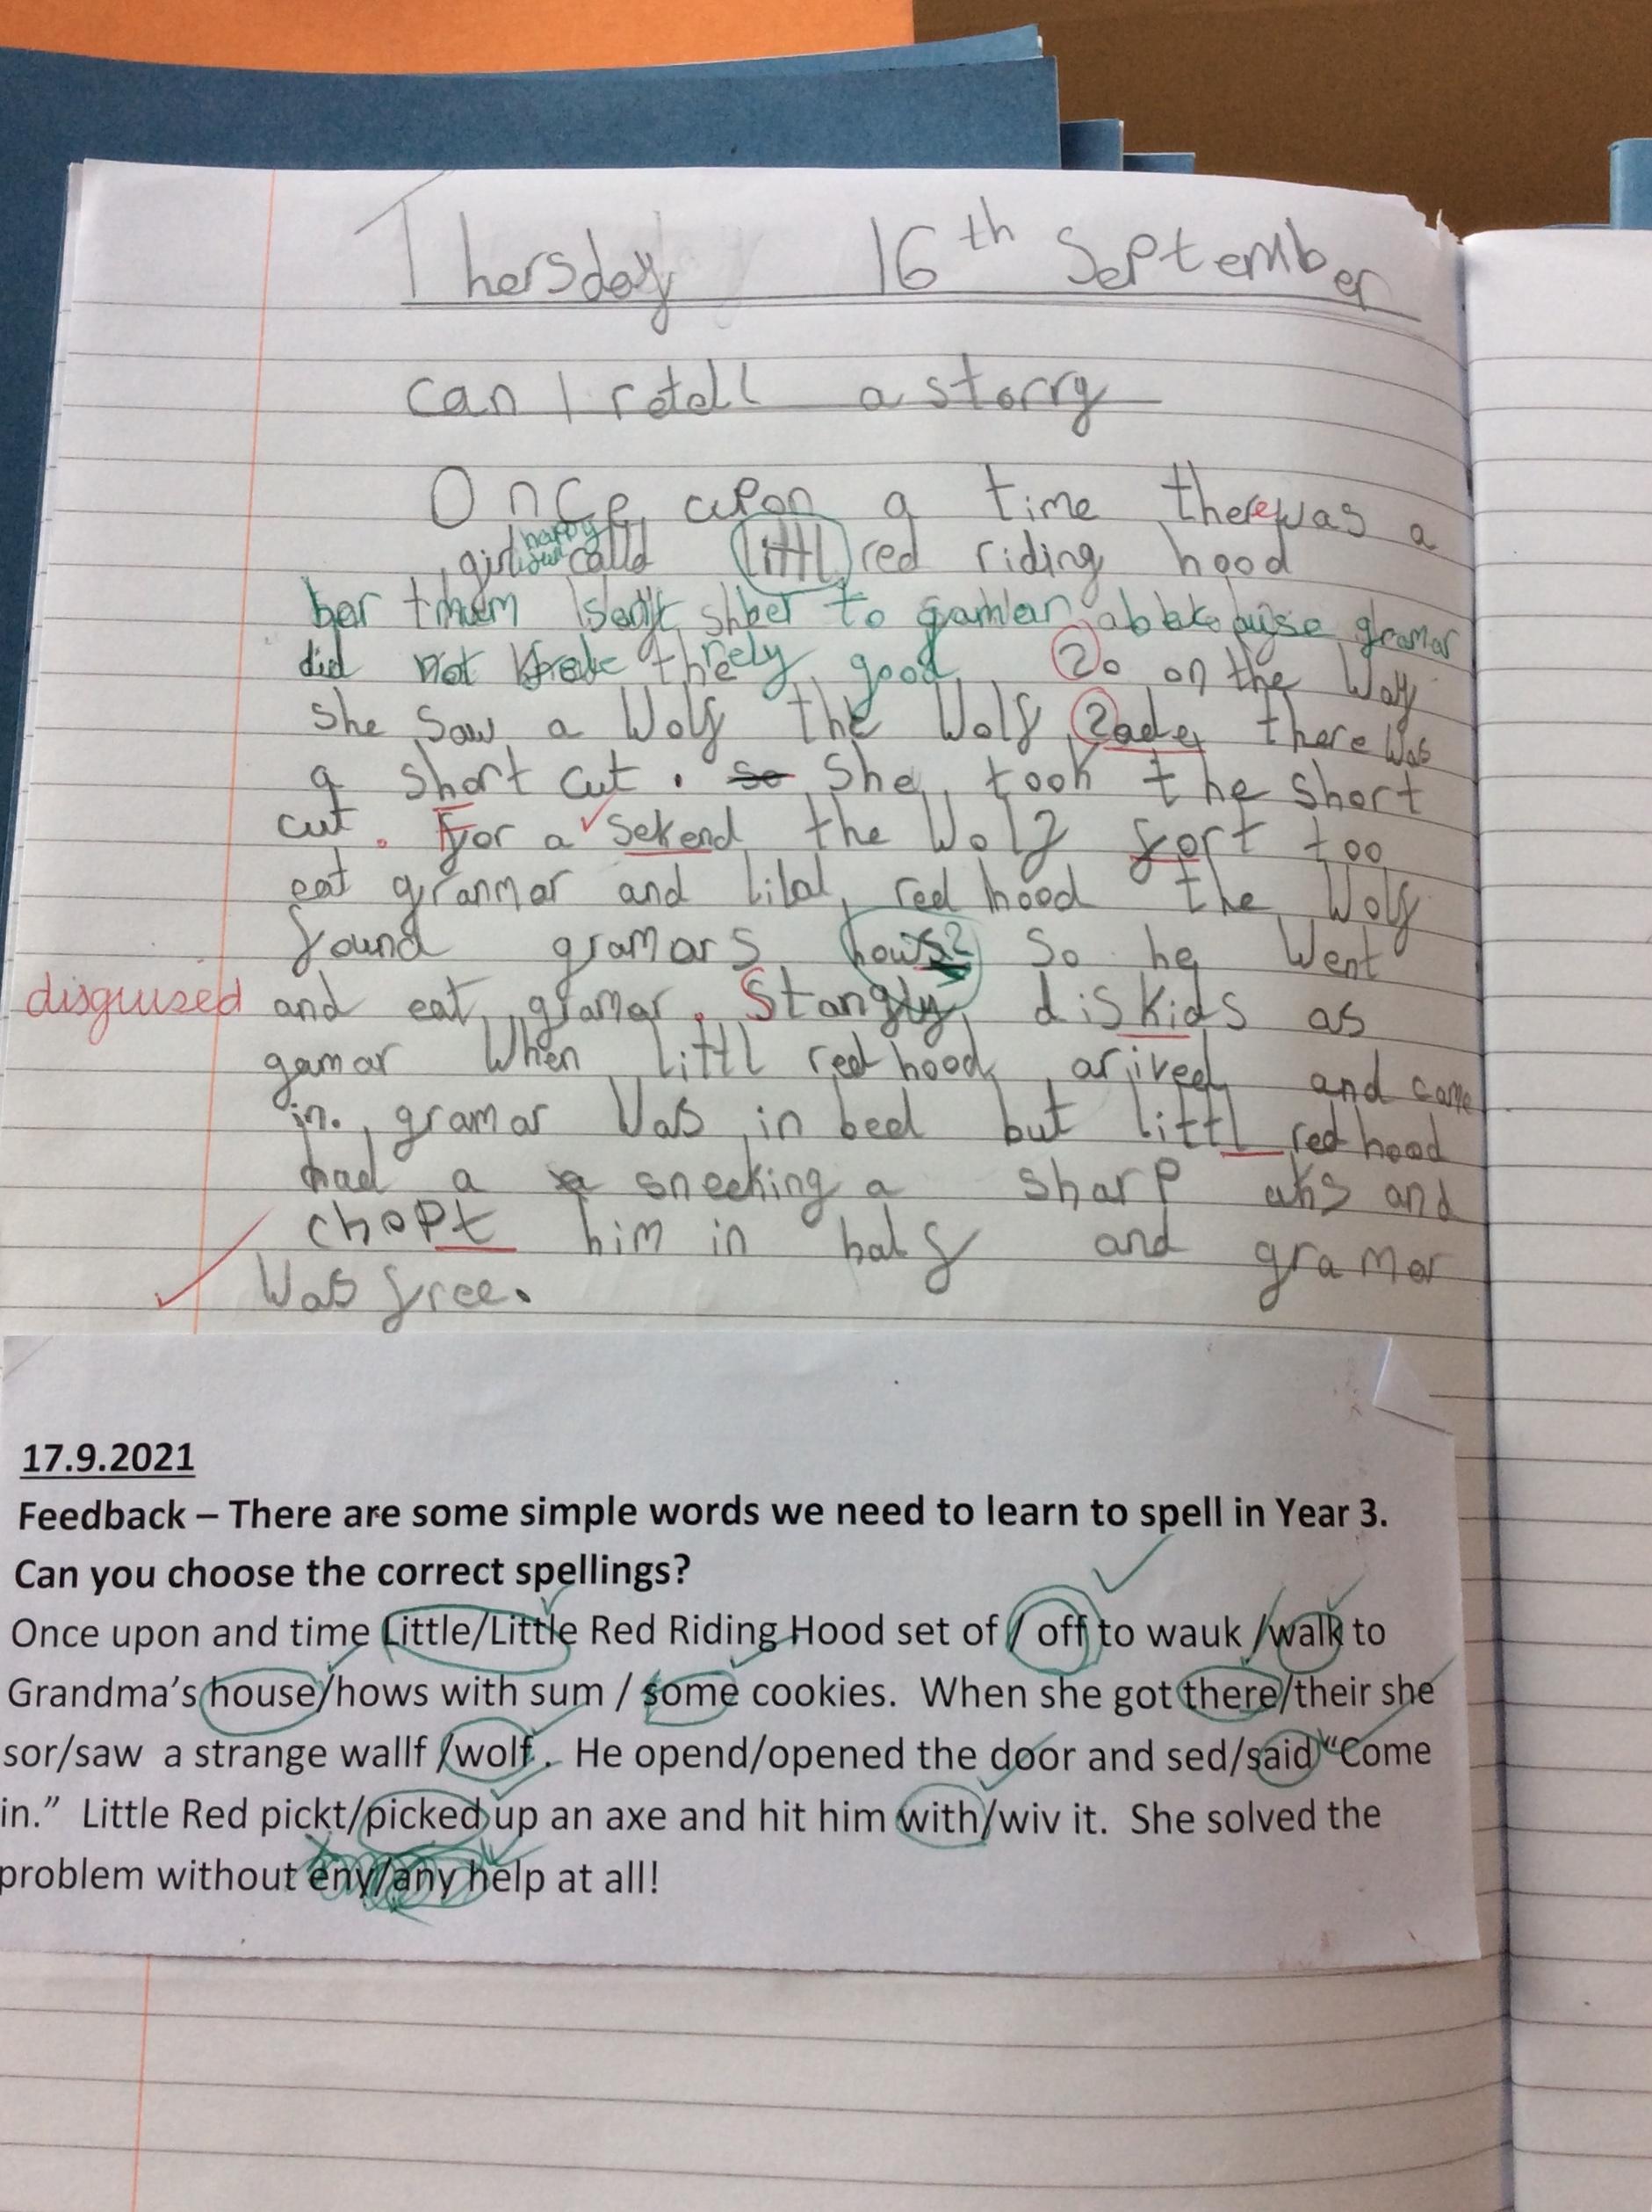 Thersday 16th September
can I retell a storry
Once upon a time there was a
happy
girl calld littl red riding hood
her mum sent her to
did not good 2o on the Way
she saw a Wolf the Wolf 2ade there Was
a short cut . so She took the short
cut . For a sekend the Wolf fort too
eat granmar and lital red hood the Wolf
found gramars hows So he Went
disguised and eat gramar . Stangly diskids as
gamar When littl red hood arived and came
in. gramar Was in bed but littl red hood
had a a sneeking a sharp aks and
chopt him in half and gramar
Was free.
17.9.2021
Feedback – There are some simple words we need to learn to spell in Year 3.
Can you choose the correct spellings?
Once upon and time Little/Little Red Riding Hood set of / off to wauk /walk to
Grandma's house/hows with sum / some cookies. When she got there/their she
sor/saw a strange wallf /wolf. He opend/opened the door and sed/said "Come
in." Little Red pickt/picked up an axe and hit him with/wiv it. She solved the
problem without eny/any help at all!